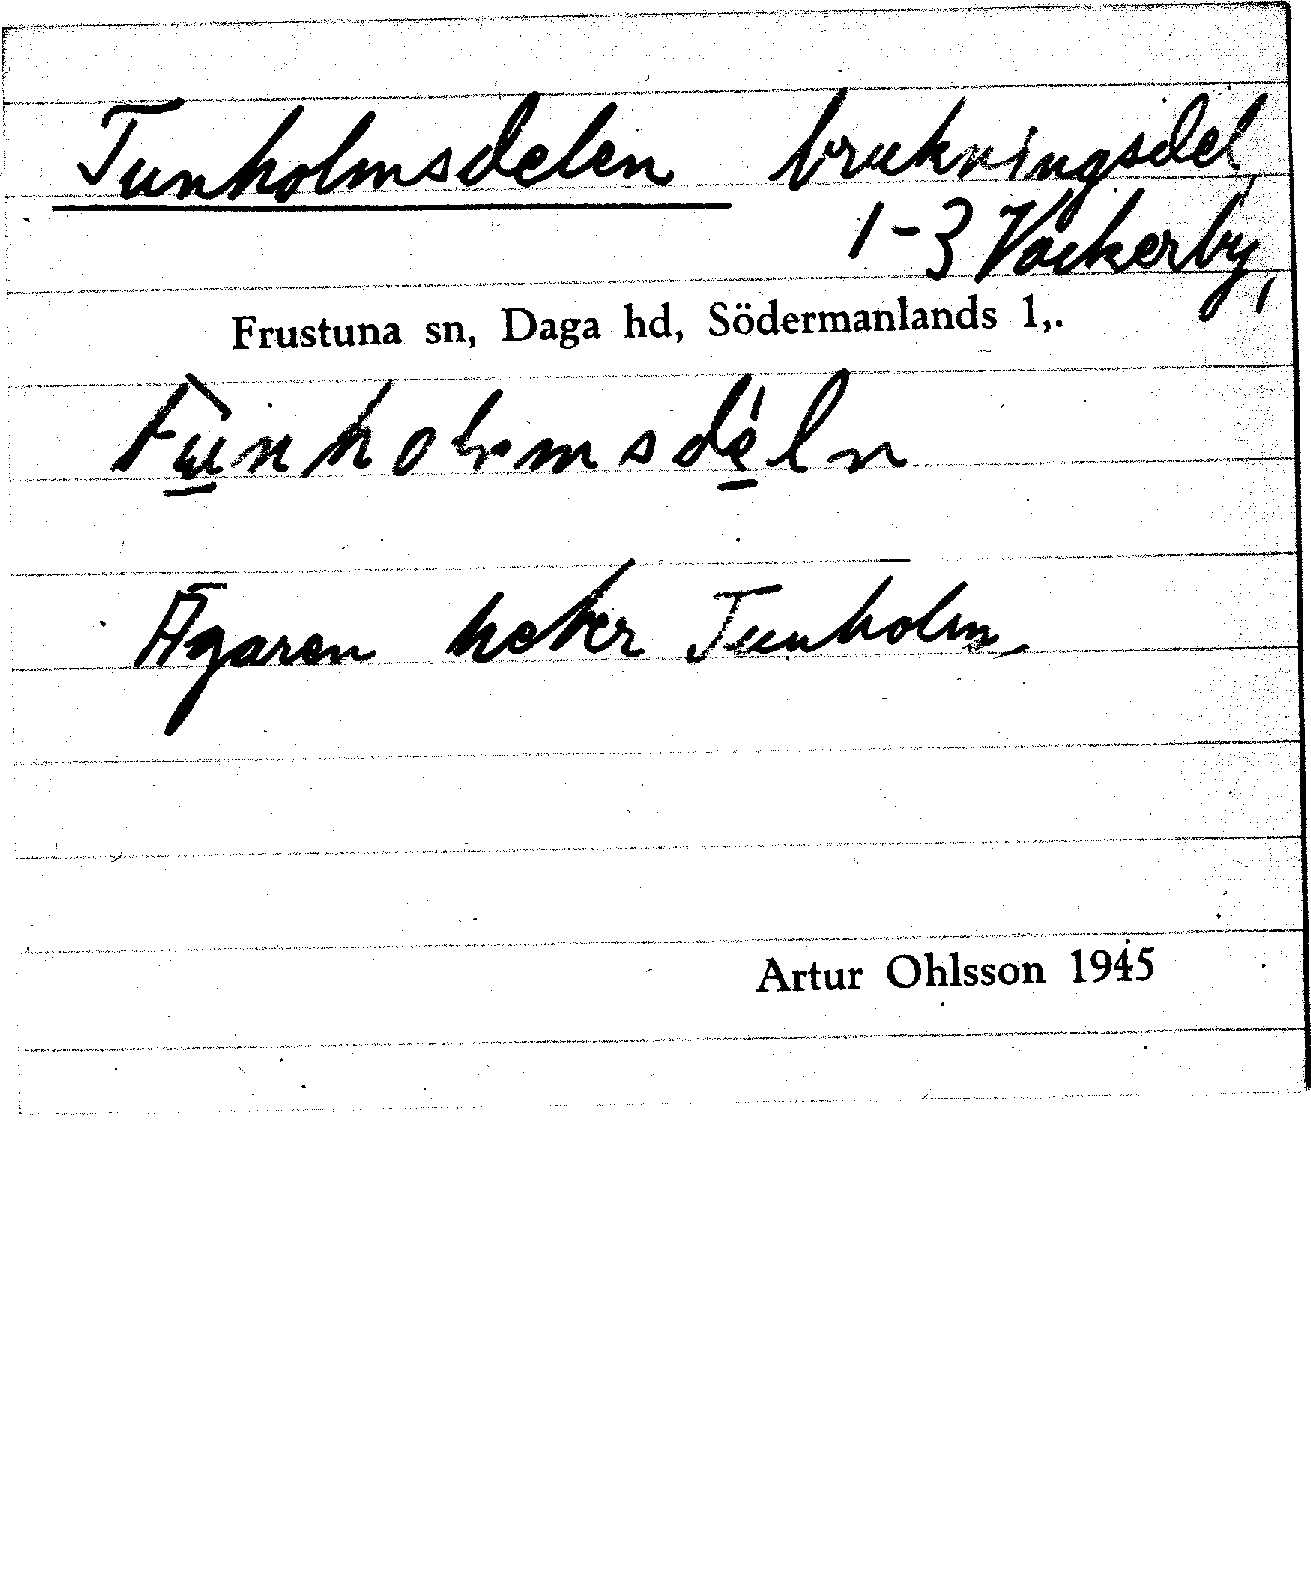 Tunholmsdelen brukningsdel,
1-3 Väckerby,
Frustuna sn, Daga hd, Södermanlands l,.
Ägaren heter Tunholm.
Artur Ohlsson 1945